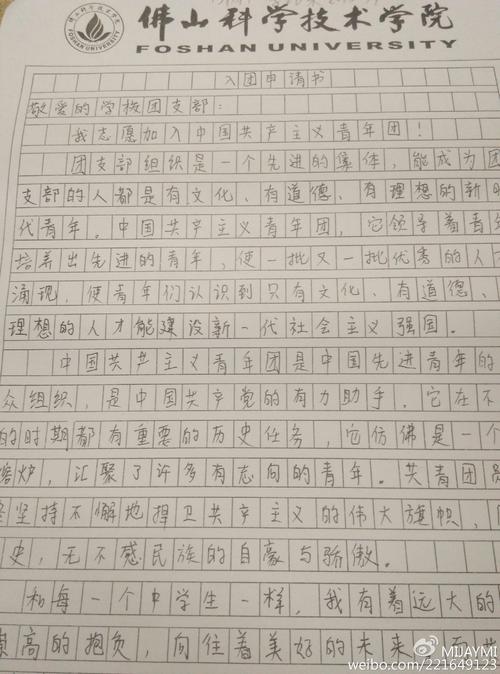 佛山科学技术学院
FOSHAN UNIVERSITY
入团申请书
敬爱的学校团支部：
我志愿加入中国共产主义青年团！
团支部组织是一个先进的集体，能成为团
支部的人都是有文化、有道德、有理想的新时
代青年。中国共产主义青年团，它领导着青年
培养出先进的青年，使一批又一批优秀的人才
涌现，使青年们认识到只有文化、有道德、
理想的人才能建设新一代社会主义强国。
中国共产主义青年团是中国先进青年的
众组织，是中国共产党的有力助手。它在不
的时期都有重要的历史任务，它仿佛是一个
熔炉，汇聚了许多有志向的青年。共青团员
坚持不懈地捍卫共产主义的伟大旗帜，
史，无不感民族的自豪与骄傲。
和每一个中学生一样，我有着远大的
高的抱负，向往着美好的未来
MIJAYMI
weibo.com/221649123